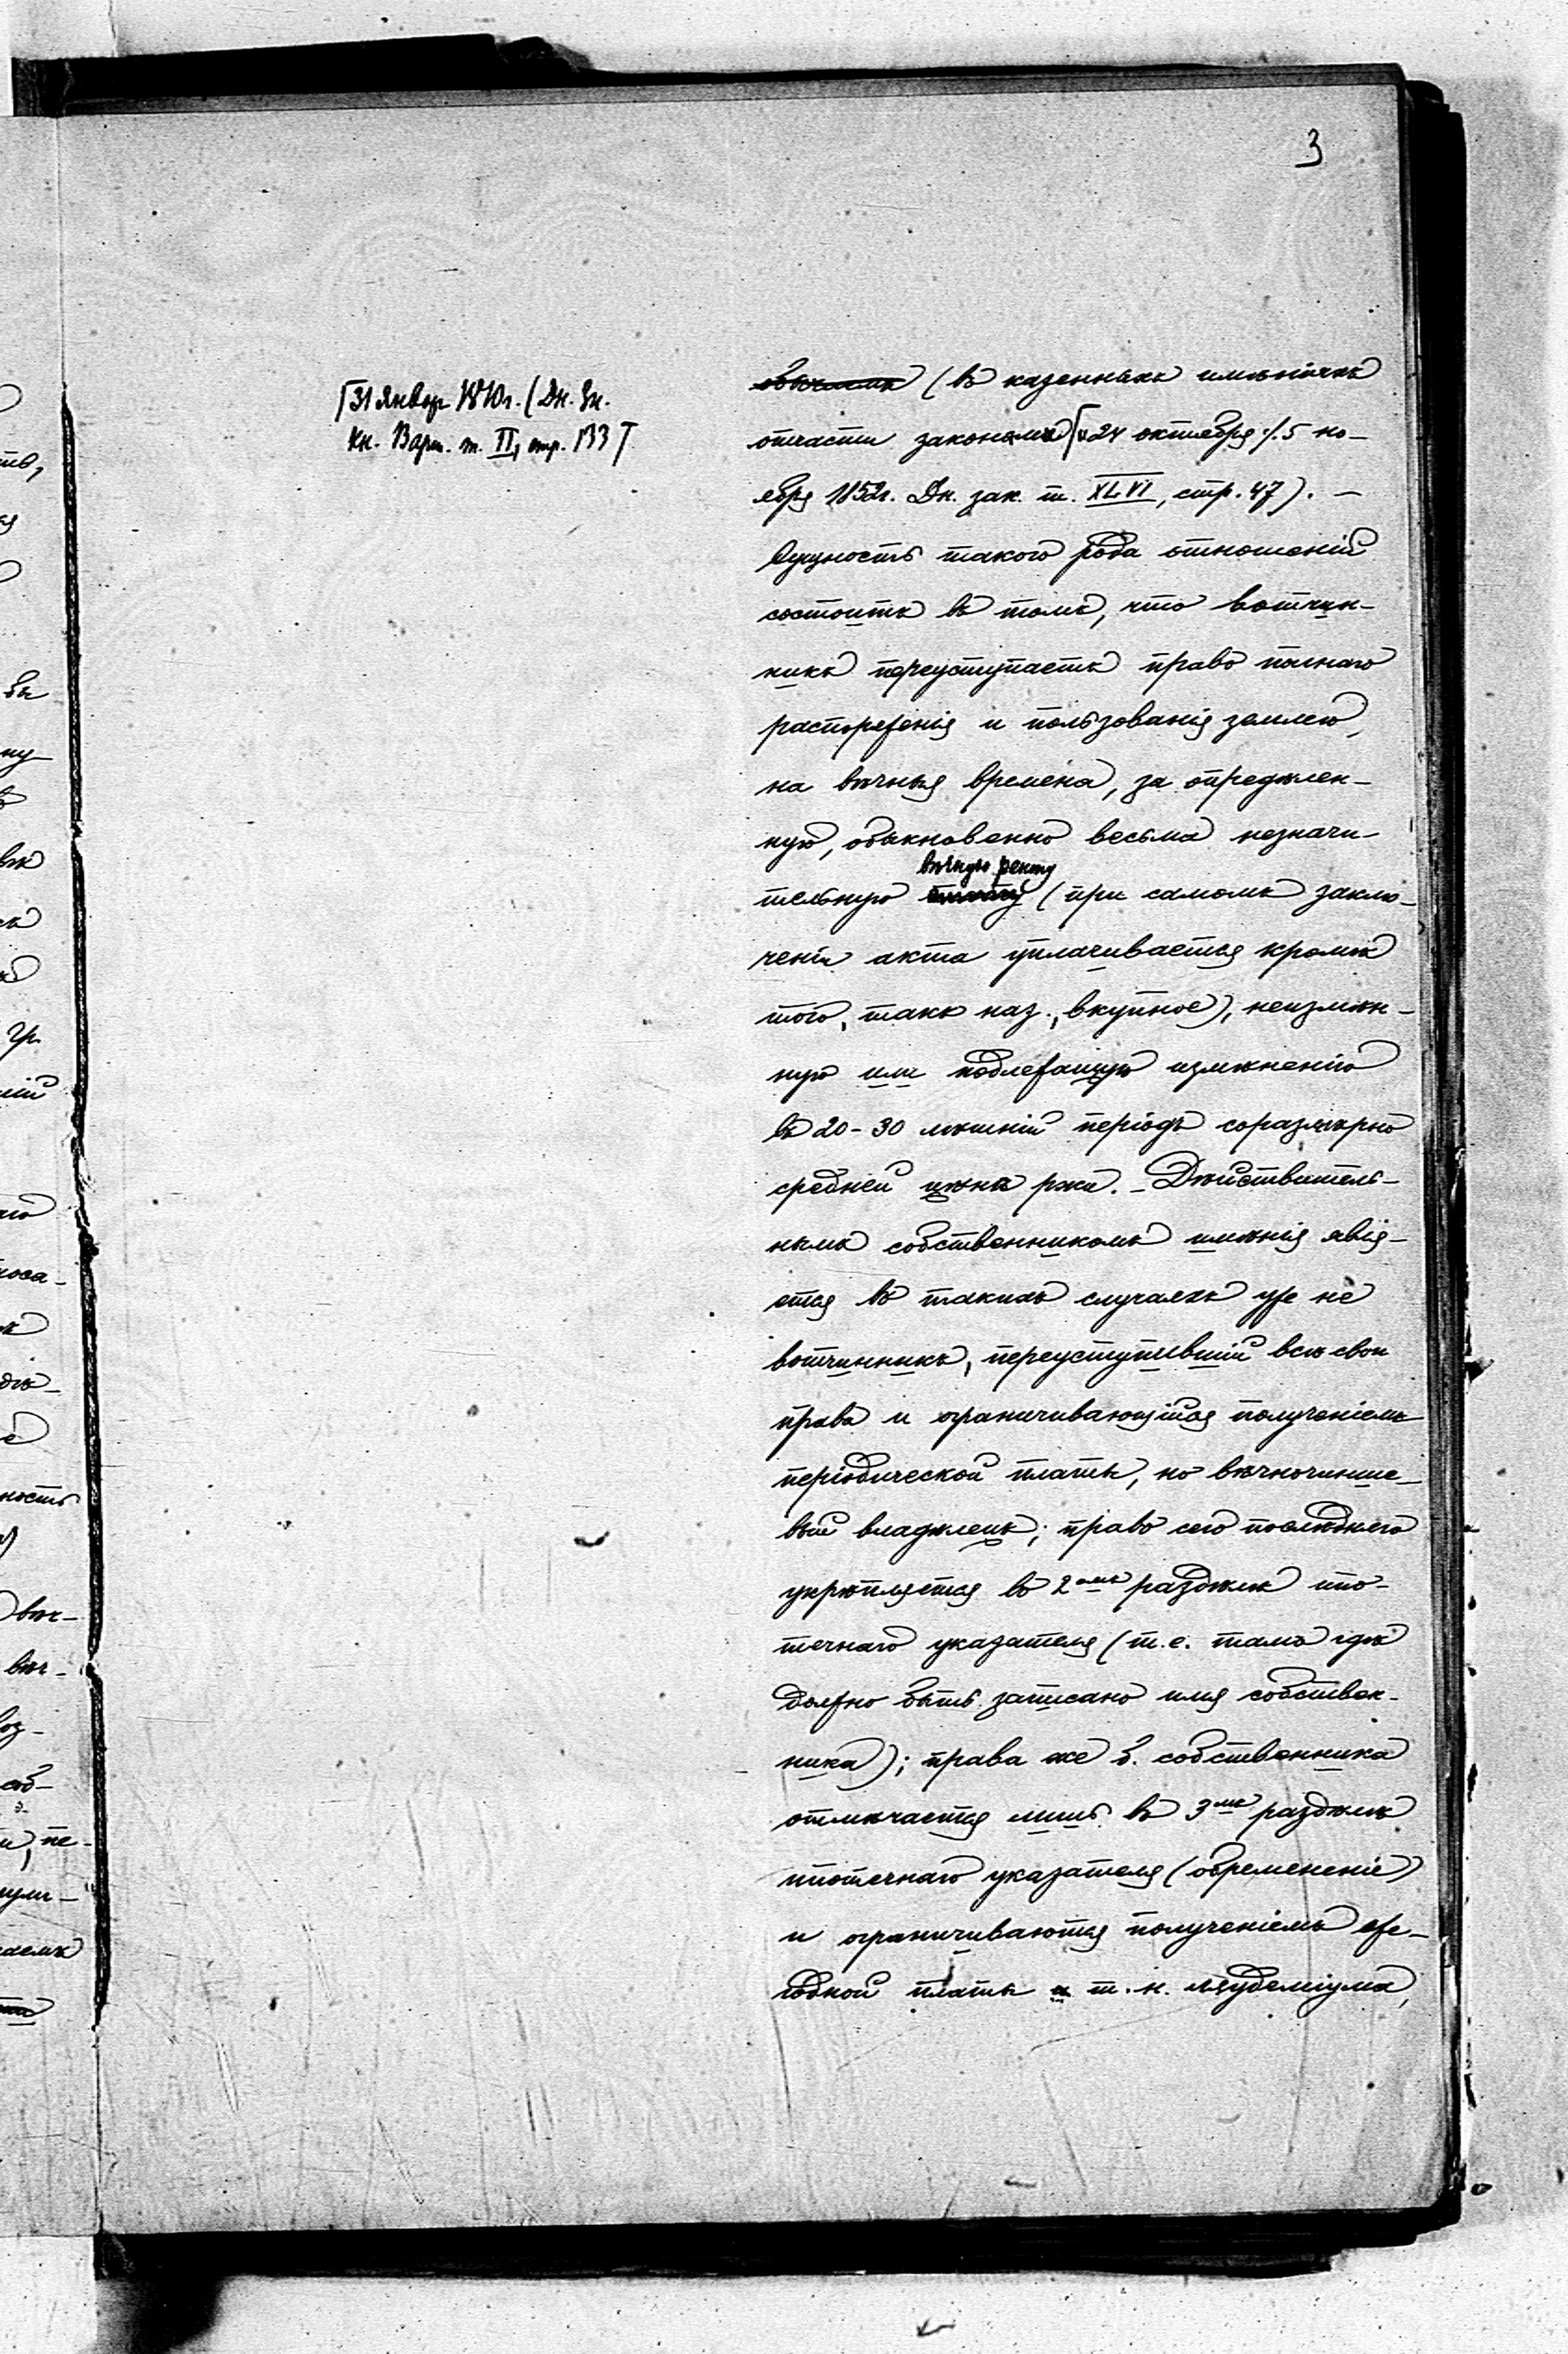 3
31 Январ 1810г. (Дн. Зк.
Кн. Варш. т. II, стр. 133
(въ казенныхъ имѣніяхъ
отчасти закономъ и 24 октября / 5 но-
ября 1852г. Дн. зак. т. XLVI, стр. 47). —
Сущность такого рода отношеній
состоитъ въ томъ, что вотчин-
никъ переуступаетъ право полнаго
распоряженія и пользованія землею,
на вѣчныя времена, за опредѣлен-
ную, обыкновенно весьма незначи-
вѣчную ренту
тельную плату (при самомъ заклю-
ченіи акта уплачивается кромѣ
того, такъ наз., вкупное), неизмѣн-
ную или подлежащую измѣненію
въ 20-30 лѣтній періодъ соразмѣрно
средней цѣнѣ ржи. - Дѣйствитель-
нымъ собственникомъ имѣнія явля-
ется въ такихъ случаяхъ уже не
вотчинникъ, переуступившій всѣ свои
права и ограничивающійся полученіемъ
періодической платы, но вѣчночинше-
вый владѣлецъ; право сего послѣдняго
укрѣпляется во 2омъ раздѣлѣ ипо-
течнаго указателя (т.е. тамъ гдѣ
должно быть записано имя собствен-
ника); права же б. собственника
отмѣчается лишь въ 3мъ раздѣлѣ
ипотечнаго указателя (обремененіе)
и ограничиваются полученіемъ еже-
годной платы и т. н. ляудеміума,